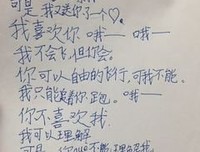 可是 我又送你了一个♡。
我喜欢你 哦—— 哦——
我不会飞,但你会。
你可以自由的飞行,可我不能。
我只能 着你 跑。——
你不喜欢我.
我可以理解
可是 你 不能